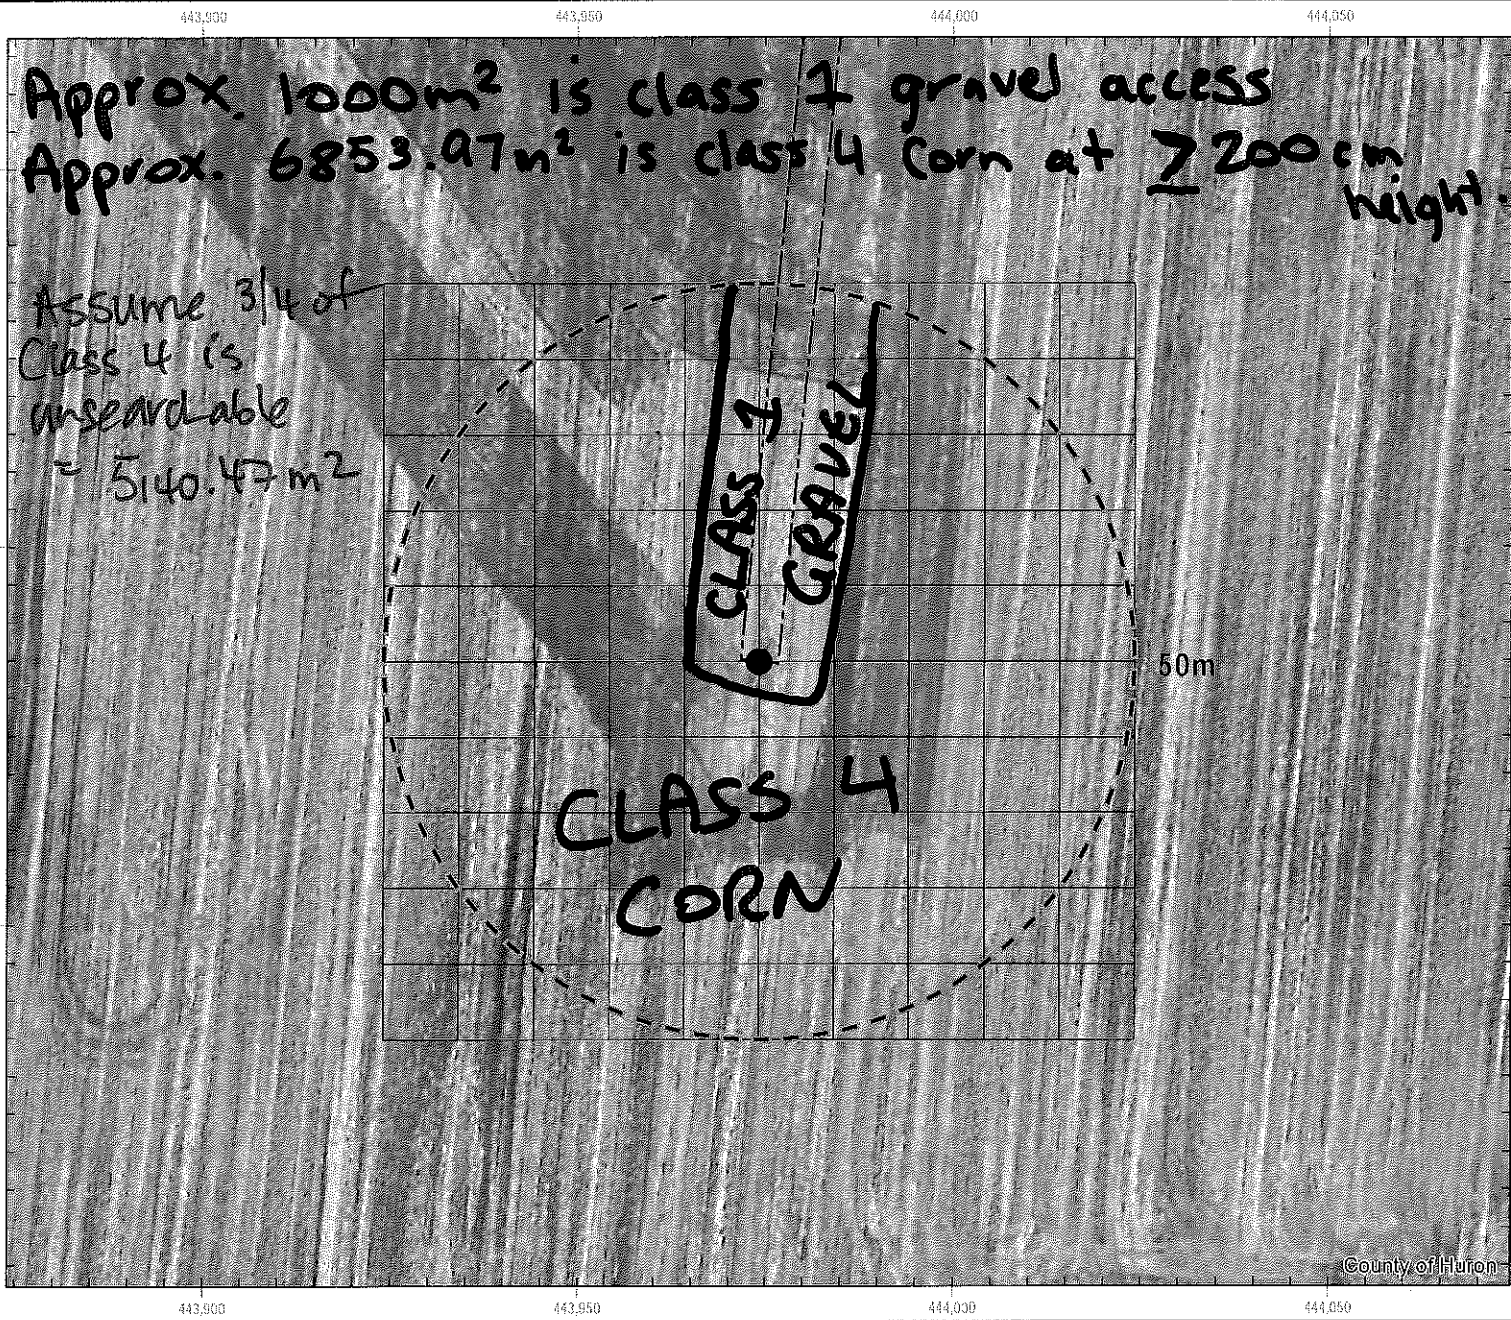 443,900 443,950 444,000 444,050
Approx. 1000m² is class 1 gravel access
Approx. 6853.97m² is class 4 Corn at ≥ 200cm
height.
Assume 3/4 of
Class 4 is
unsearchable
= 5140.47m²
CLASS 1
GRAVEL
50m
CLASS 4
CORN
County of Huron
443,900 443,950 444,000 444,050